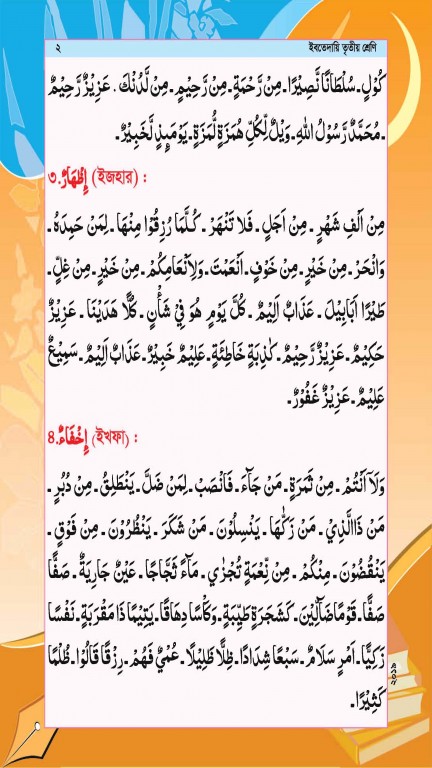 ২ ইবতেদায়ি তৃতীয় শ্রেণি
كُوْلٍ۔ سُلْطَانًا نَّصِيْرًا۔ مِنْ رَّحْمَةٍ۔ مِنْ رَّحِيْمٍ۔ مِنْ لَّدُنْكَ۔ عَزِيْزٌ رَّحِيْمٌ
۔ مُحَمَّدٌ رَّسُوْلُ اللهِ۔ وَيْلٌ لِّكُلِّ هُمَزَةٍ لُّمَزَةٍ۔ يَوْمَىِٕذٍ لَّخَبِيْرٌ۔
৩. إِظْهَارٌ (ইজহার) :
مِنْ اَلْفِ شَهْرٍ۔ مِنْ اَجَلٍ۔ فَلَا تَنْهَرْ۔ كُلَّمَا رُزِقُوْا مِنْهَا۔ لِمَنْ حَمِدَهُ۔
وَانْحَرْ۔ مِنْ خَيْرٍ۔ مِنْ خَوْفٍ۔ اَنْعَمْتَ۔ وَلِاَنْعَامِكُمْ۔ مِنْ خَيْرٍ۔ مِنْ غِلٍّ۔
طَيْرًا اَبَابِيْلَ۔ عَذَابٌ اَلِيْمٌ۔ كُلَّ يَوْمٍ هُوَ فِيْ شَأْنٍ۔ كُلًّا هَدَيْنَا۔ عَزِيْزٌ
حَكِيْمٌ۔ عَزِيْزٌ رَّحِيْمٌ۔ كَاذِبَةٍ خَاطِئَةٍ۔ عَلِيْمٌ خَبِيْرٌ۔ عَذَابٌ اَلِيْمٌ۔ سَمِيْعٌ
عَلِيْمٌ۔ عَزِيْزٌ غَفُوْرٌ۔
৪. إِخْفَاءٌ (ইখফা) :
وَلَاۤ اَنْتُمْ۔ مِنْ ثَمَرَةٍ۔ مَنْ جَآءَ۔ فَانْصَبْ۔ لِمَنْ ضَلَّ۔ يَنْطَلِقُ۔ مِنْ دُبُرٍ۔
مَنْ ذَاالَّذِيْ۔ مَنْ زَكّٰهَا۔ يَنْسِلُوْنَ۔ مَنْ شَكَرَ۔ يَنْظُرُوْنَ۔ مِنْ فَوْقٍ۔
يَنْقُضُوْنَ۔ مِنْكُمْ۔ مِنْ نِّعْمَةٍ تُجْزٰي۔ مَآءً ثَجَّاجًا۔ عَيْنٌ جَارِيَةٌ۔ صَفًّا
صَفًّا۔ قَوْمًا ضَآلِّيْنَ۔ كَشَجَرَةٍ طَيِّبَةٍ۔ وَكَأْسًا دِهَاقًا۔ يَتِيْمًا ذَا مَقْرَبَةٍ۔ نَفْسًا
زَكِيًّا۔ اَمْرٍ سَلَامٌ۔ سَبْعًا شِدَادًا۔ ظِلًّا ظَلِيْلًا۔ عُمْيٌ فَهُمْ۔ رِزْقًا قَالُوْا۔ ظُلْمًا
كَثِيْرًا۔
২০১৯